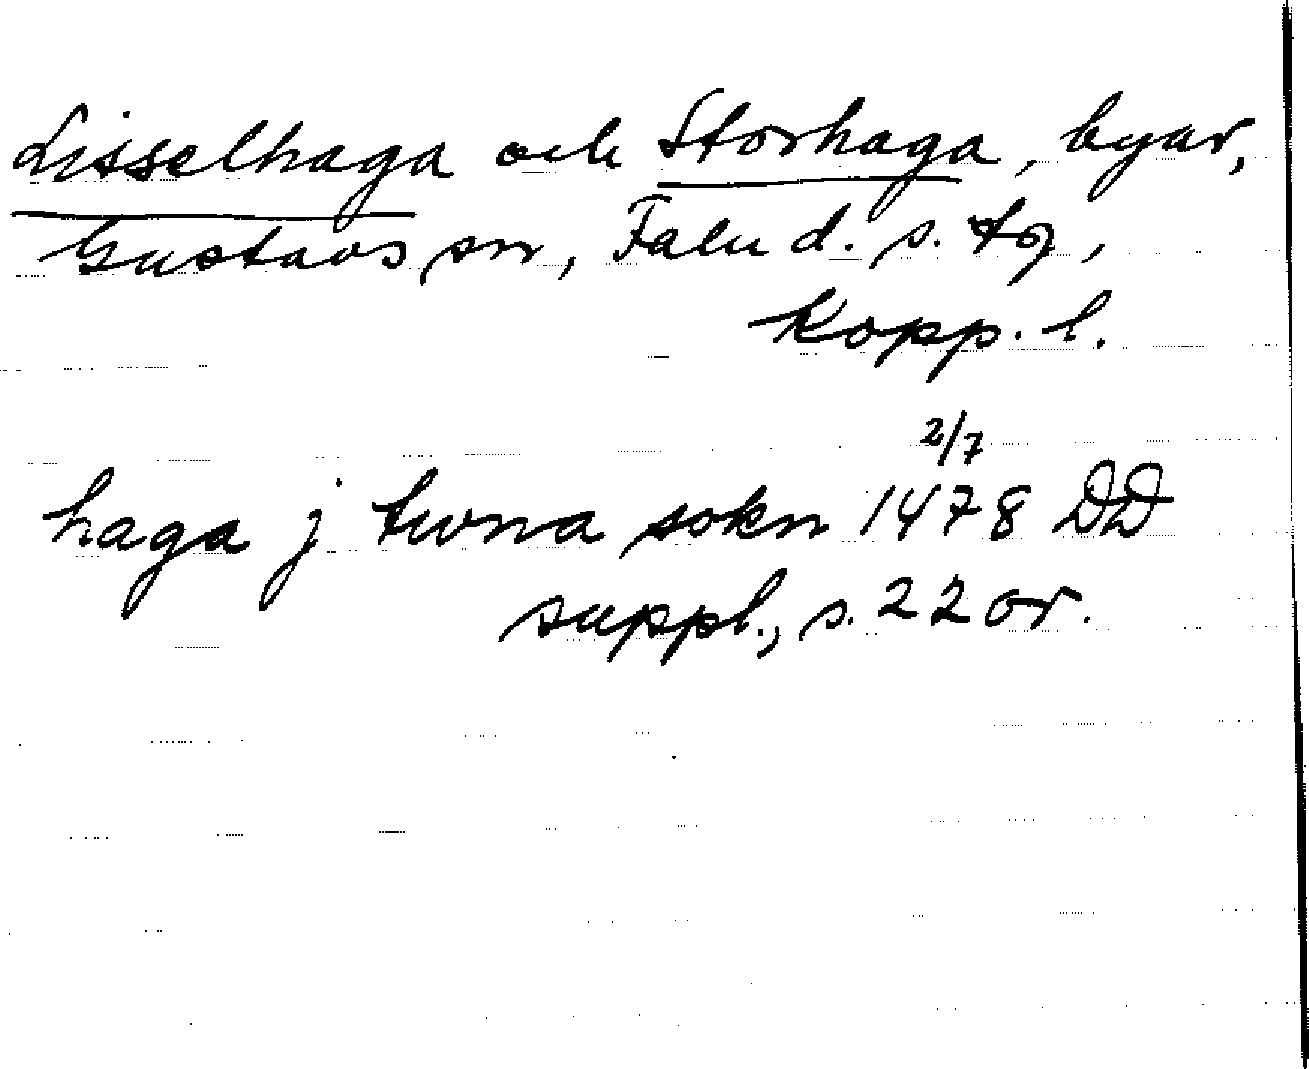 Lisselhaga och Storhaga, byar,
Gustavs sn, Falu d. s. tg,
Kopp. l.
haga j twna sokn 2/7 1478 DD
suppl., s. 22 or.